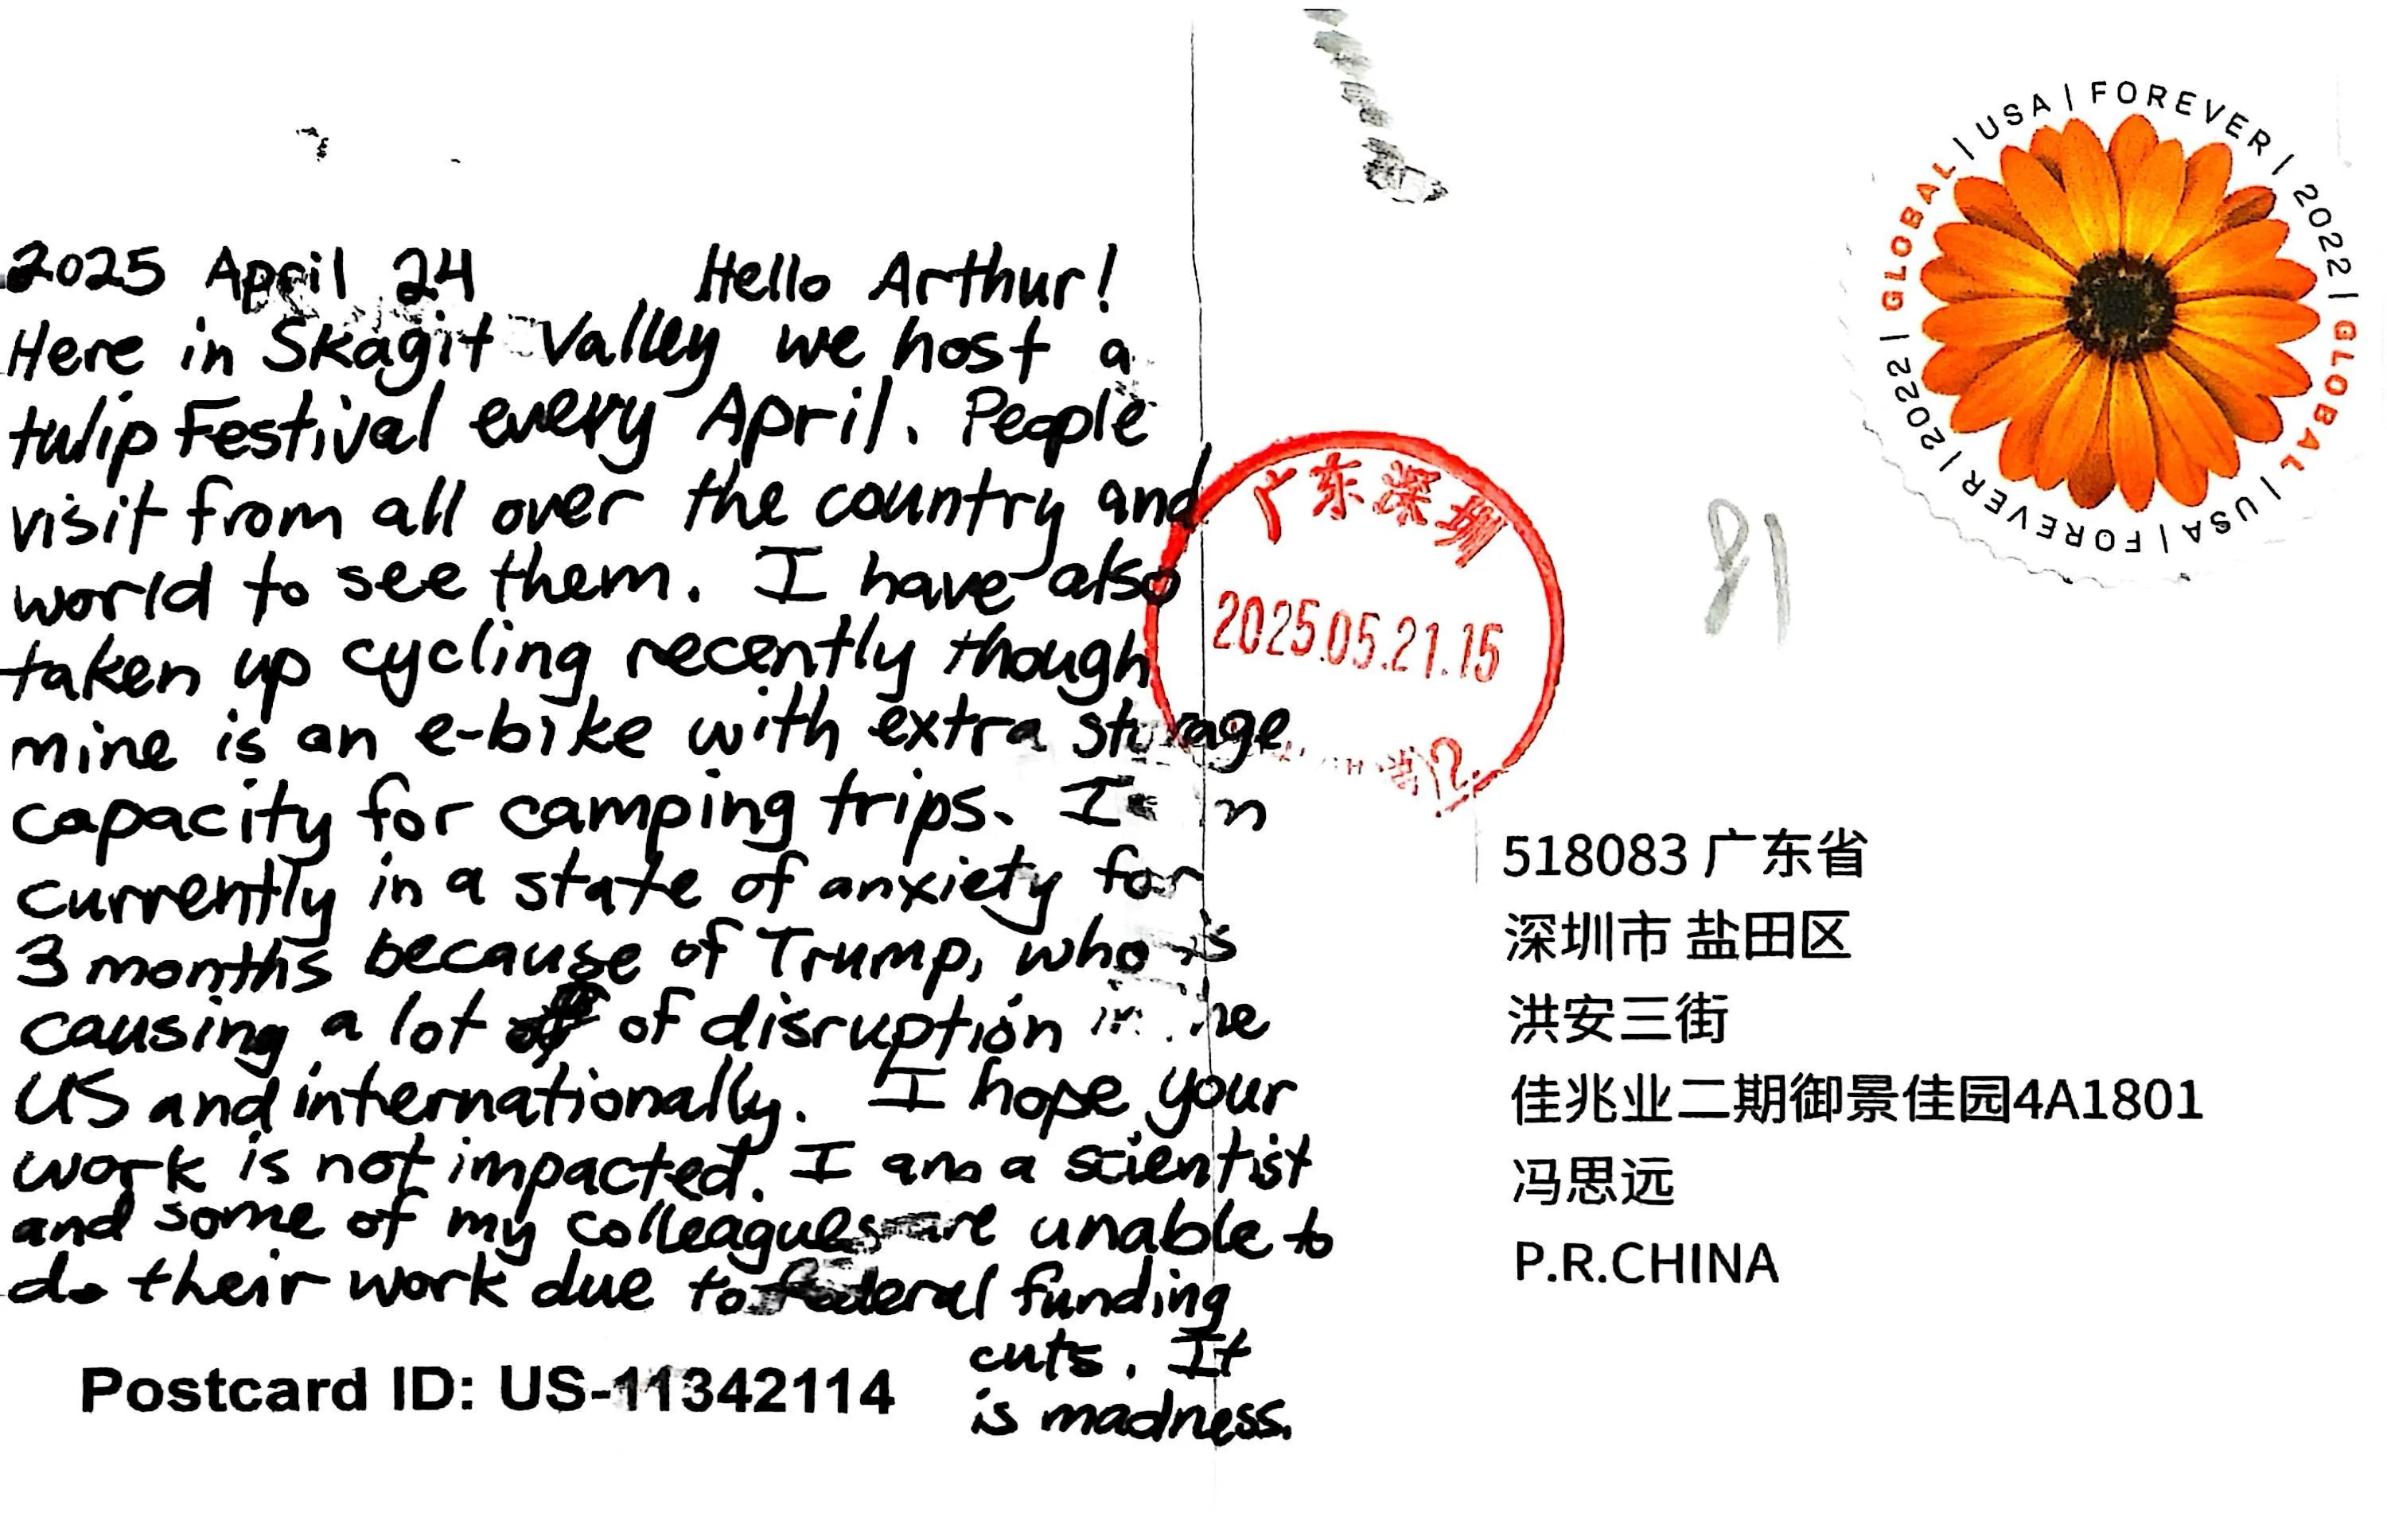 2025 April 24 Hello Arthur!
Here in Skagit Valley we host a
tulip Festival every April. People
visit from all over the country and
world to see them. I have also
taken up cycling recently though
mine is an e-bike with extra storage
capacity for camping trips. I
currently in a state of anxiety for
3 months because of Trump, who is
causing a lot of disruption in
US and internationally. I hope your
work is not impacted. I am a scientist
and some of my colleagues are unable to
do their work due to federal funding
cuts. It
is madness.
Postcard ID: US-11342114
GLOBAL | USA | FOREVER | 2022 | GLOBAL | USA | FOREVER | 2022 |
广东深圳
2025.05.21.15
518083 广东省
深圳市 盐田区
洪安三街
佳兆业二期御景佳园4A1801
冯思远
P.R.CHINA